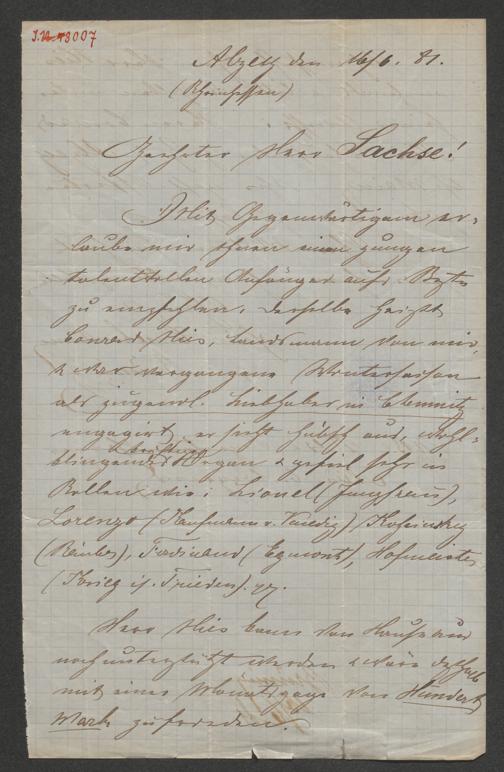 I.N. 43007
Alzey den 16/6. 81.
(Rheinhessen)
Geehrter Herr Sachse!
Mit Gegenwärtigem er-
laube mir Ihnen einen jungen
talentvollen Anfänger aufs Beste
zu empfehlen. Derselbe heißt
Conrad Mies, Landsmann von mir,
& war vergangene Wintersaison
als jugendl. Liebhaber in Chemnitz
engagirt, er sieht hübsch aus, wohl-
klingendes kräftiges Organ & gefiel sehr in
Rollen wie: Lionel (Jungfrau),
Lorenzo (Kaufmann v. Venedig), Kosinsky
(Räuber), Ferdinand (Egmont), Hofmeister
(Krieg i. Frieden).
Herr Mies kann von Hause aus
noch unterstützt werden & wäre deshalb
mit einer Monatsgage von Hundert
Mark zufrieden.